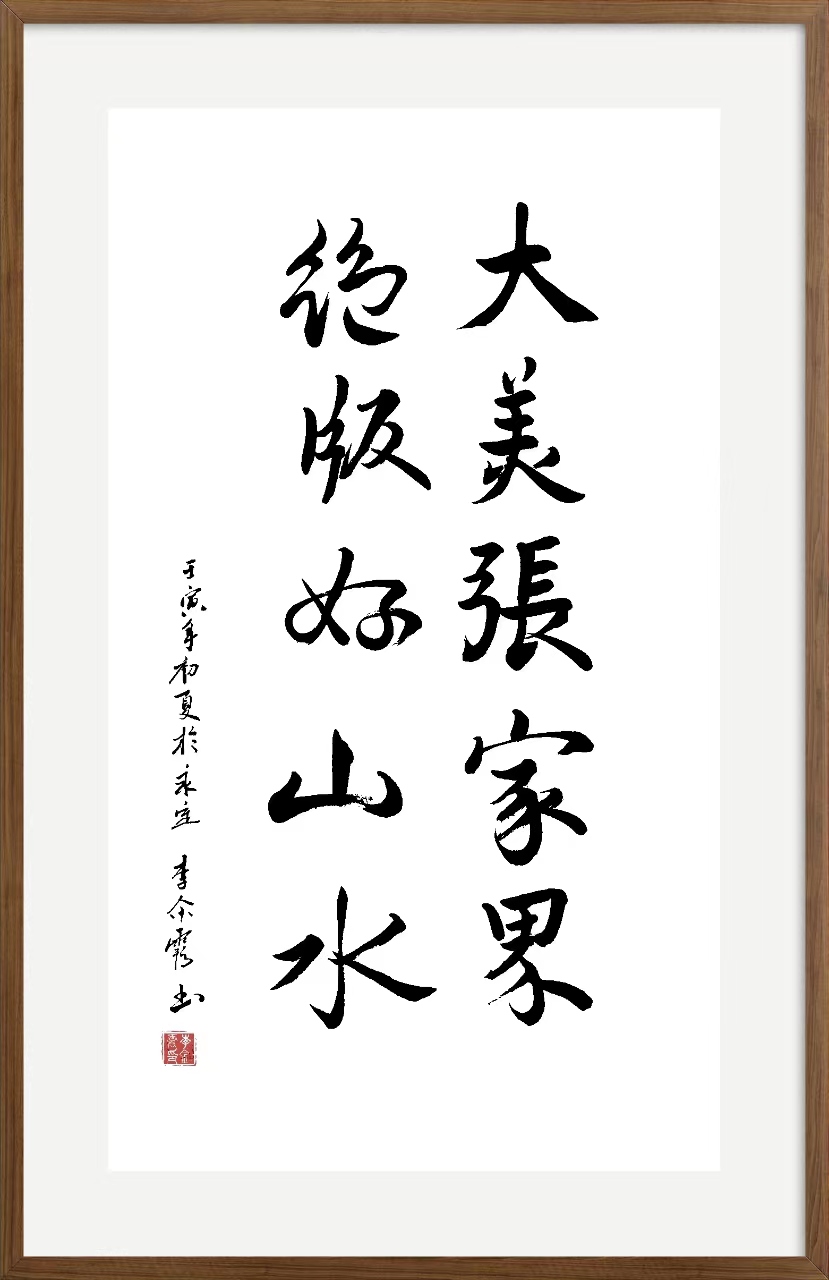 大美張家界
絕版好山水
壬寅年初夏於永定 李金霞书